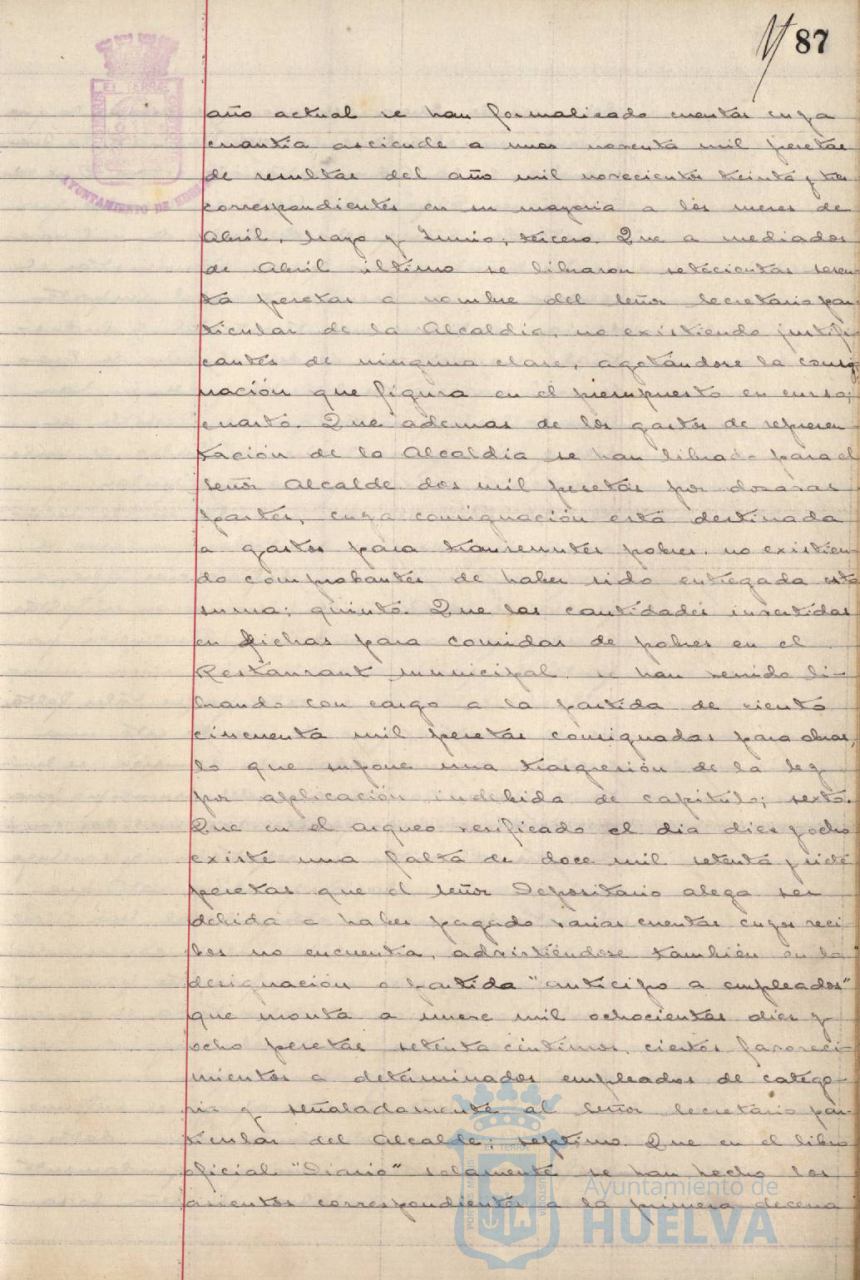 87
EL TERRAE
AYUNTAMIENTO DE HUELVA
año actual se han formalizado cuentas cuya
cuantía asciende a unas noventa mil pesetas
de resultas del año mil novecientos treinta y tres
correspondientes en su mayoria a los meses de
Abril, Mayo y Junio; tercero. Que a mediados
de Abril último se libraron setecientas sesen-
ta pesetas a nombre del Señor Secretario par-
ticular de la Alcaldía, no existiendo justifi-
cantes de ninguna clase, agotándose la consig-
nación que figura en el presupuesto en curso;
cuarto. Que ademas de los gastos de represen-
tación de la Alcaldía se han librado para el
Señor Alcalde dos mil pesetas por dozavas
partes, cuya consignación está destinada
a gastos para transeuntes pobres, no existien-
do comprobantes de haber sido entregada esta
suma; quinto. Que las cantidades invertidas
en fichas para comidas de pobres en el
Restaurant municipal se han venido li-
brando con cargo a la partida de ciento
cincuenta mil pesetas consignadas para obras,
lo que supone una trasgresión de la ley
por aplicación indebida de capítulo; sexto.
Que en el arqueo verificado el dia diez y ocho
existe una falta de doce mil setenta y siete
pesetas que el Señor Depositario alega ser
debida a haber pagado varias cuentas cuyos reci-
bos no encuentra, advirtiéndose también en la
designación o partida "anticipo a empleados"
que monta a nueve mil ochocientas diez y
ocho pesetas setenta céntimos, ciertos favoreci-
mientos a determinados empleados de catego-
ria y señaladamente al Señor Secretario par-
ticular del Alcalde; septimo. Que en el libro
oficial "Diario" solamente se han hecho los
asientos correspondientes a la primera decena
Ayuntamiento de
HUELVA